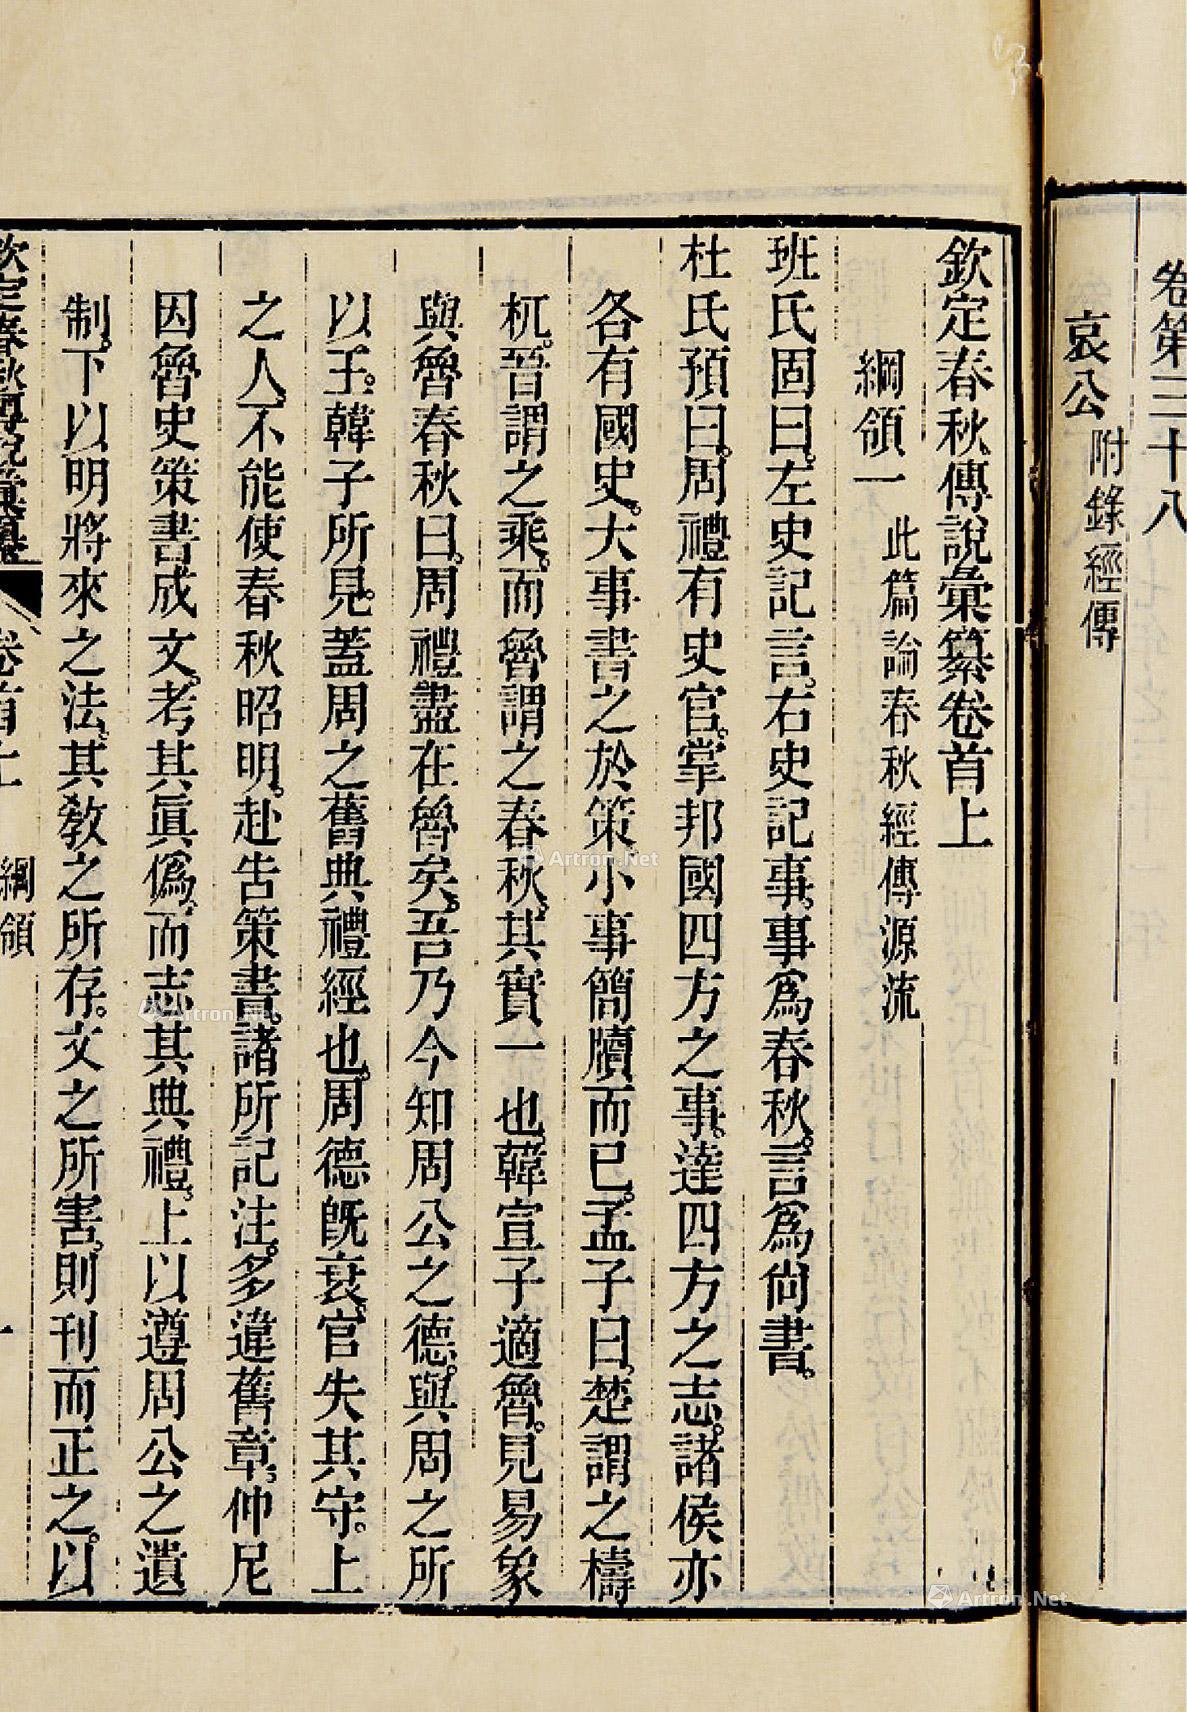 卷第三十八
哀公附錄經傳
欽定春秋傳說彙纂卷首上
綱領一 此篇論春秋經傳源流
班氏固曰。左史記言。右史記事。事為春秋。言為尚書。
杜氏預曰。周禮有史官。掌邦國四方之事。達四方之志。諸侯亦
各有國史。大事書之於策。小事簡牘而已。孟子曰。楚謂之檮
杌。晉謂之乘。而魯謂之春秋。其實一也。韓宣子適魯。見易象
與魯春秋。曰。周禮盡在魯矣。吾乃今知周公之德。與周之所
以王。韓子所見。蓋周之舊典禮經也。周德既衰。官失其守。上
之人。不能使春秋昭明。赴告策書。諸所記注。多違舊章。仲尼
因魯史策書成文。考其眞僞。而志其典禮。上以遵周公之遺
制。下以明將來之法。其教之所存。文之所害。則刊而正之。以
欽定春秋傳說彙纂 卷首上 綱領 一
Artron.Net
Artron.Net
Artron.Net